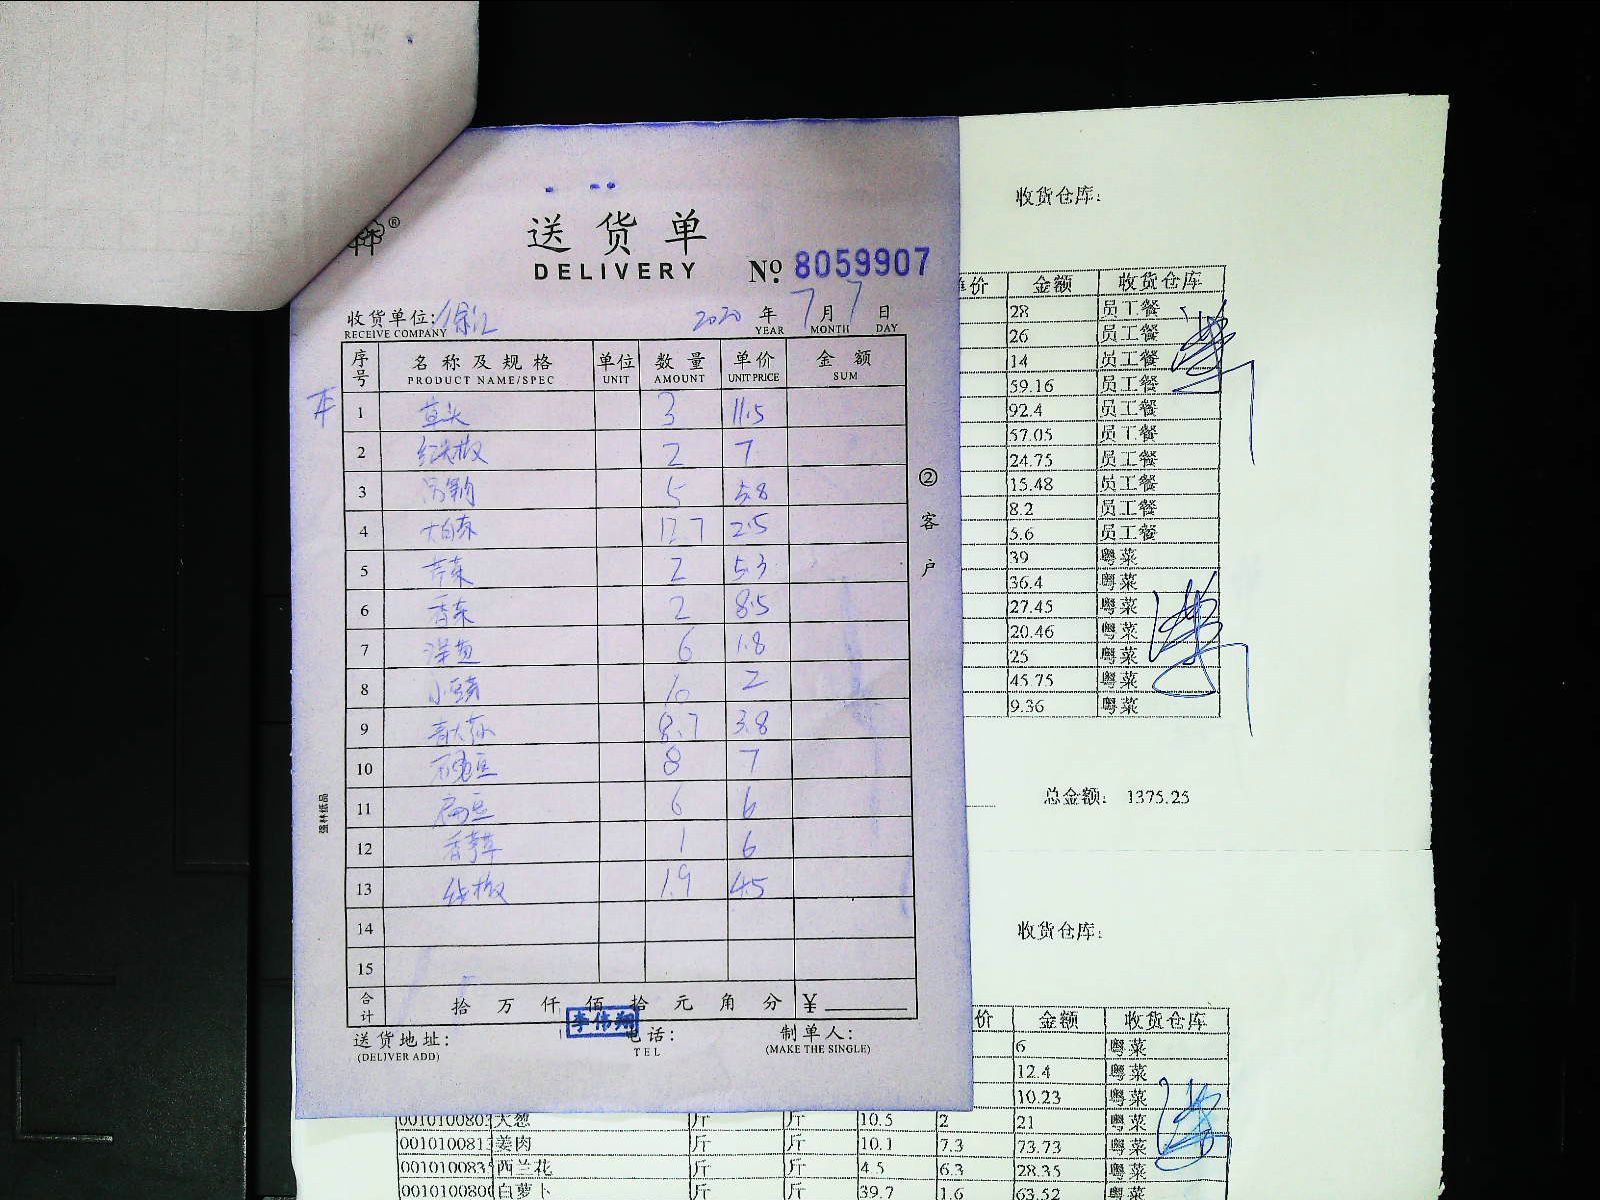 送货单
DELIVERY
№ 8059907
收货单位: 徐汇
RECEIVE COMPANY
2020 年 7 月 7 日
YEAR MONTH DAY
序号 名称及规格 单位 数量 单价 金额
PRODUCT NAME/SPEC UNIT AMOUNT UNIT PRICE SUM
1 草头 3 11.5
2 红尖椒 2 7
3 5 5.8
4 大白菜 12.7 2.5
5 芹菜 2 5.3
6 香菜 2 8.5
7 洋葱 6 1.8
8 小青 10 2
9 8.7 3.8
10 8 7
11 扁豆 6 6
12 香 1 6
13 线椒 1.9 4.5
14
15
合计 拾 万 仟 佰 拾 元 角 分 ¥
李伟翔
送货地址: 电话: 制单人:
(DELIVER ADD) TEL (MAKE THE SINGLE)
②客户
强林纸品
收货仓库:
单价 金额 收货仓库
28 员工餐
26 员工餐
14 员工餐
59.16 员工餐
92.4 员工餐
57.05 员工餐
24.75 员工餐
15.48 员工餐
8.2 员工餐
5.6 员工餐
39 粤菜
36.4 粤菜
27.45 粤菜
20.46 粤菜
25 粤菜
45.75 粤菜
9.36 粤菜
总金额: 1375.25
收货仓库:
价 金额 收货仓库
6 粤菜
12.4 粤菜
10.23 粤菜
大葱 斤 斤 10.5 2 21 粤菜
001010081 姜肉 斤 斤 10.1 7.3 73.73 粤菜
001010083 西兰花 斤 斤 4.5 6.3 28.35 粤菜
001010080 白萝卜 斤 斤 39.7 1.6 63.52 粤菜